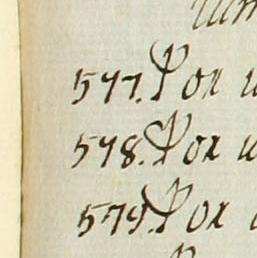 577. Por
578. Por
579. Por